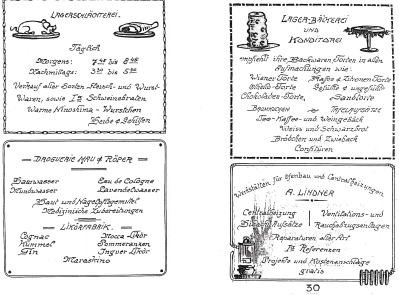 LAGERSCHLÄCHTEREI.
Täglich
Morgens: 7 bis 8
Nachmittags: 3 bis 5
Verkauf aller Sorten Fleisch- und Wurst-
Waren, sowie Ia Schweinebraten
Warme Ninoshima - Würstchen
DROGUERIE HAU & RÖPER
Haarwasser Eau de Cologne
Mundwasser Lavendelwasser
Haut und Nagelpflegemittel
Medizinische Zubereitungen
LIKÖRFABRIK.
Cognac Mocca-Likör
Kümmel Pommeranzen
Gin Ingwer Likör
Maraskino
LAGER-BÄCKEREI
UND
KONDITOREI
empfiehlt ihre Backwaren, Torten in allen
Aufmachungen wie:
Wiener-Torte Kaffee & Zitronen-Torte
Gefüllte & ungefüllte
Chokoladen-Torte, Sandtorte
BAUMKUCHEN TAFELAUFSÄTZE
Tee-Kaffee- und Weingebäck
Weiss und Schwarzbrot
Brödchen und Zwieback
Confitüren
Werkstätten für Ofenbau und Centralheizungen.
A. LINDNER
Centralheizung Ventilations- und
Rauchabzugsanlagen
Reparaturen aller Art
Ia Referenzen
Projekte und Kostenanschläge
gratis
30